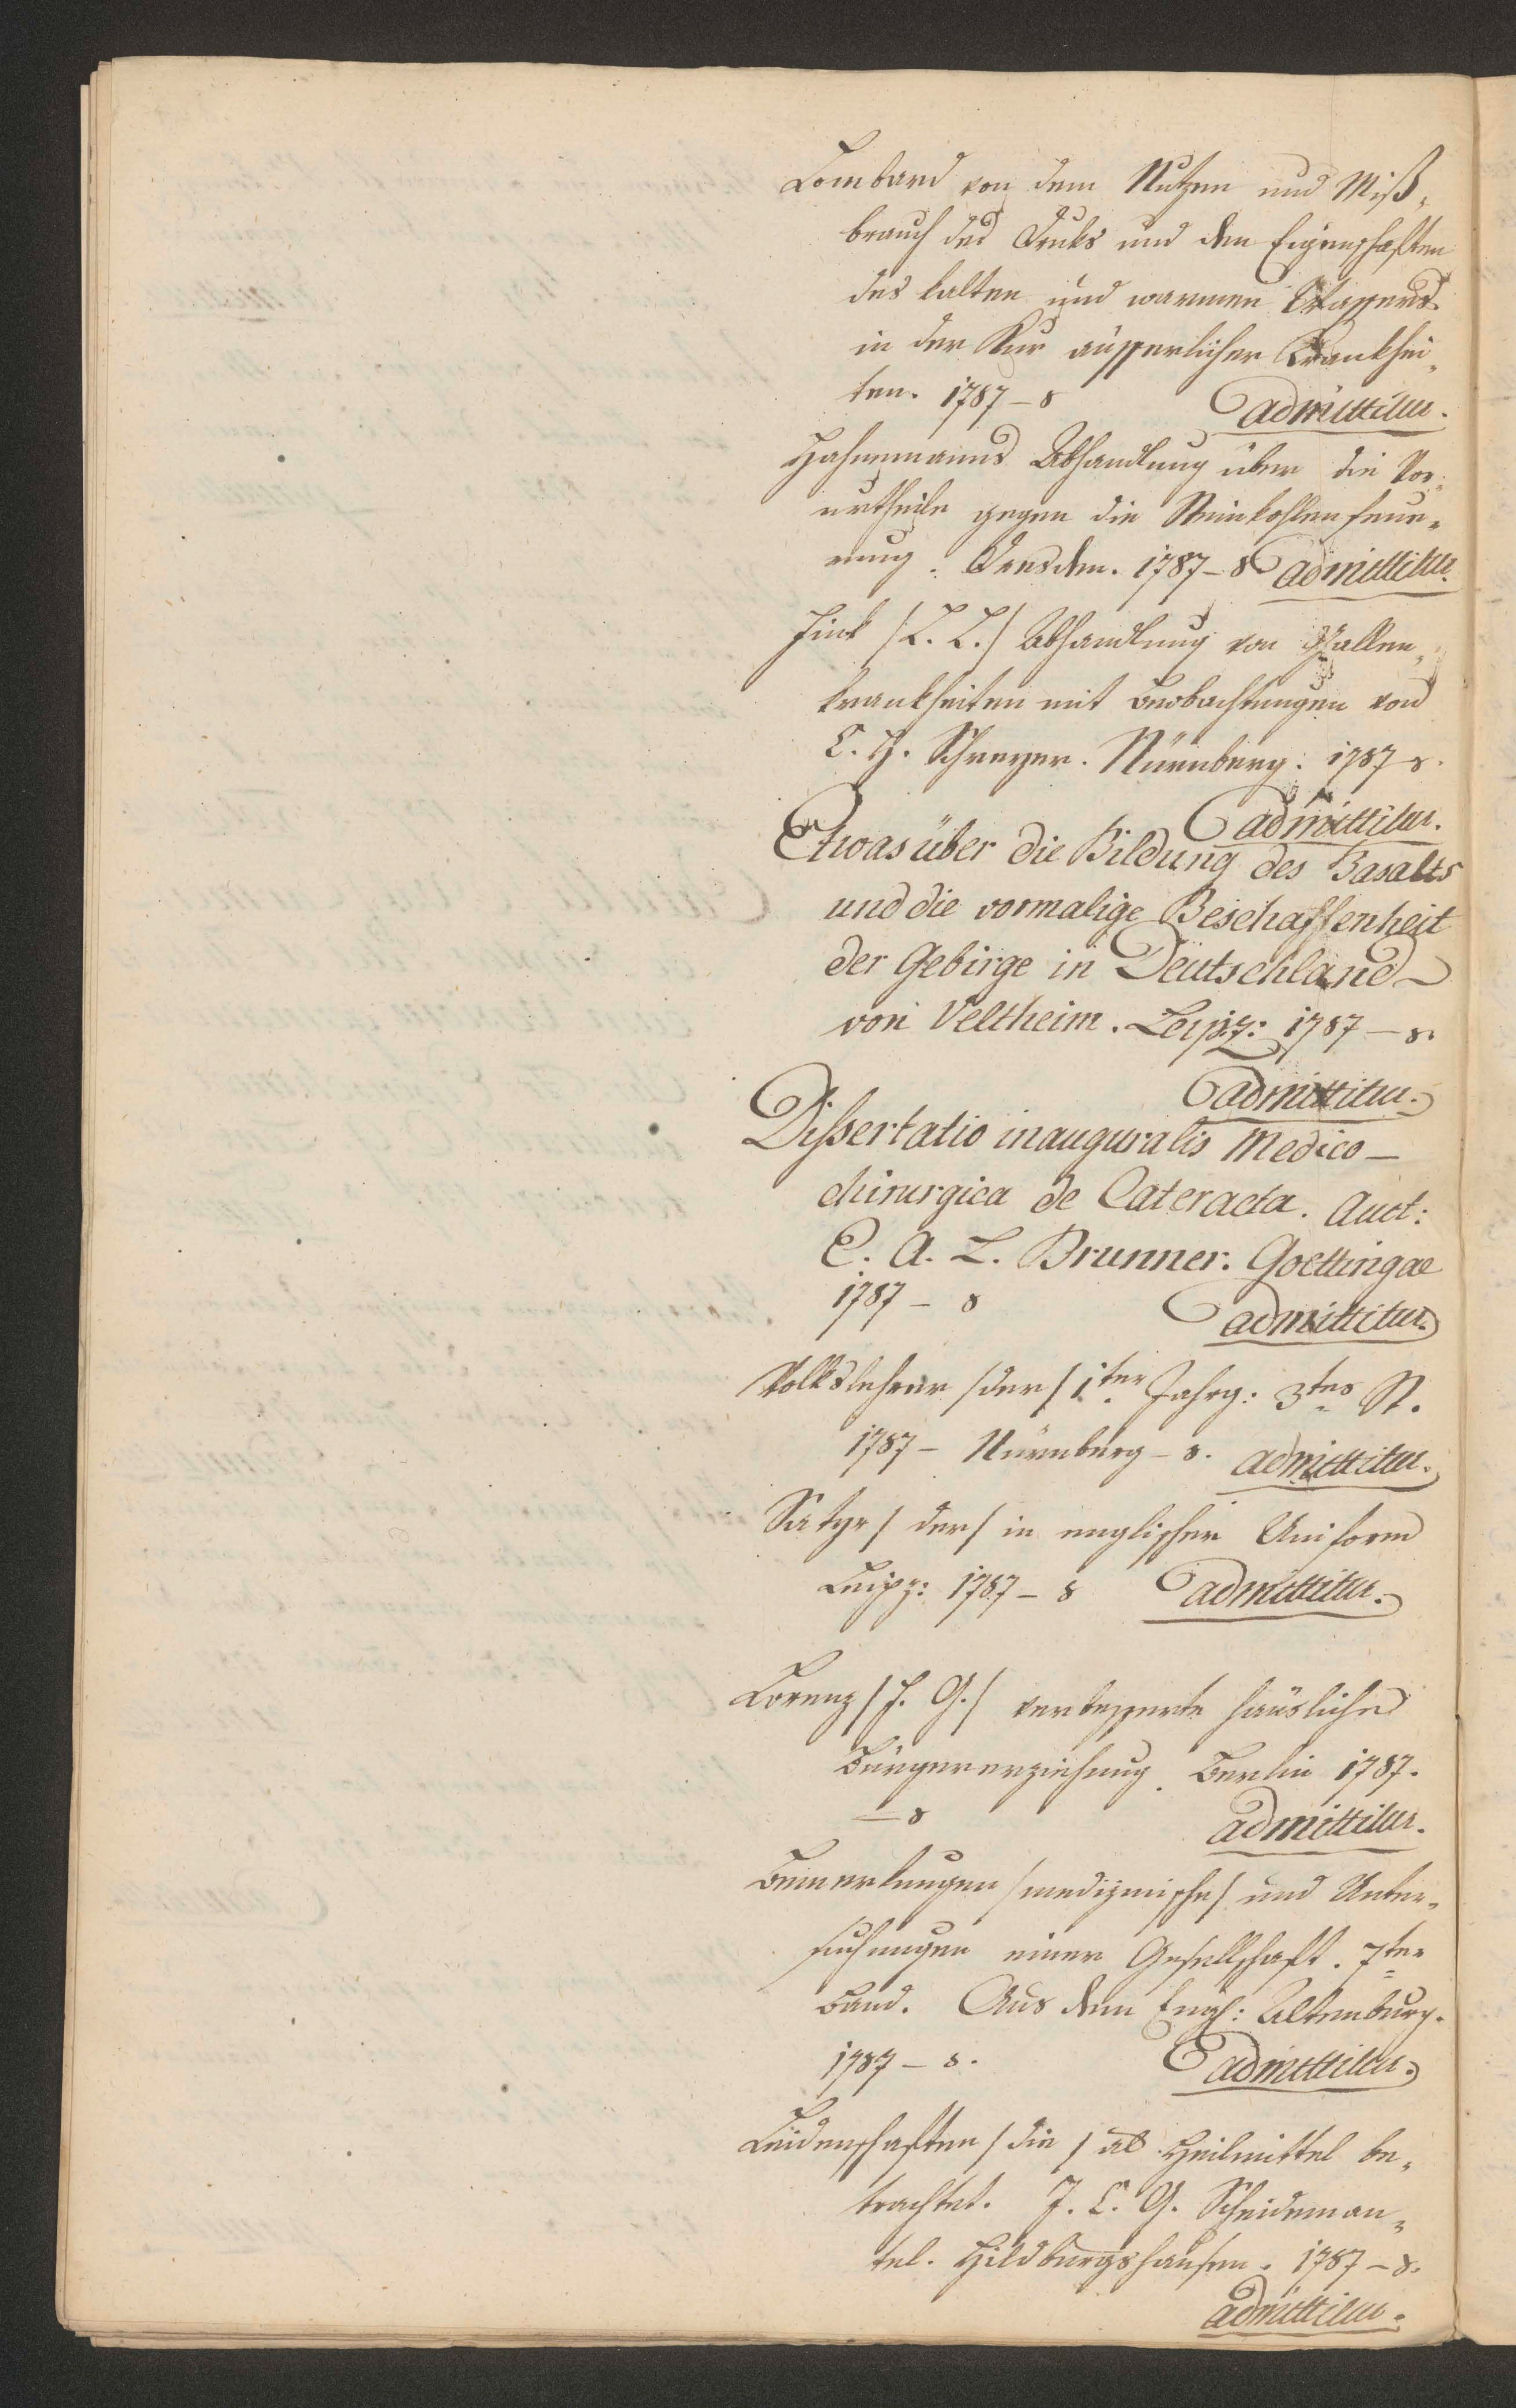 Lombard von dem Nutzen und Miß„
brauch des Druks und den Eigenschaften
des kalten und warmen Wassers
in der Kur äusserlicher Krankhei„
ten. 1787 – 8 admittitur.
Hahnemanns Abhandlung über die Vor„
urtheile gegen die Steinkohlenfeue„
rung. Dresden. 1787 – 8 admittitur.
Fink / L. L. / Abhandlung von Gallen„
krankheiten mit Beobachtungen von
C. H. Schreyer. Nürnberg: 1787 8.
admittitur.
Etwas über die Bildung des Basalts
und die vormalige Beschaffenheit
der Gebirge in Deutschland
von Veltheim. Leipz: 1787 – 8.
admittitur.
Dissertatio inauguralis Medico –
chirurgica de Cateracta. Auct:
C. A. L. Brunner. Goettingae
1787 – 8 admittitur.
Volkslehrer / der / 1ter Jahrg: 3tes St.
1787 – Nürnberg – 8. admittitur.
Satyr / der / in englischer Uniform
Leipz: 1787 – 8 admittitur.
Lorenz / J. G. / verbesserte häusliche
Bürgererziehung. Berlin 1787.
– 8 admittitur.
Bemerkungen / medizinische / und Unter„
suchungen einer Gesellschaft. 7ter
Band. Aus dem Engl: Altenburg.
1787 – 8. admittitur.
Leidenschaften / die / als Heilmittel be„
trachtet. J. C. G. Scheideman„
tel. Hildburgshausen. 1787 – 8.
admittitur.